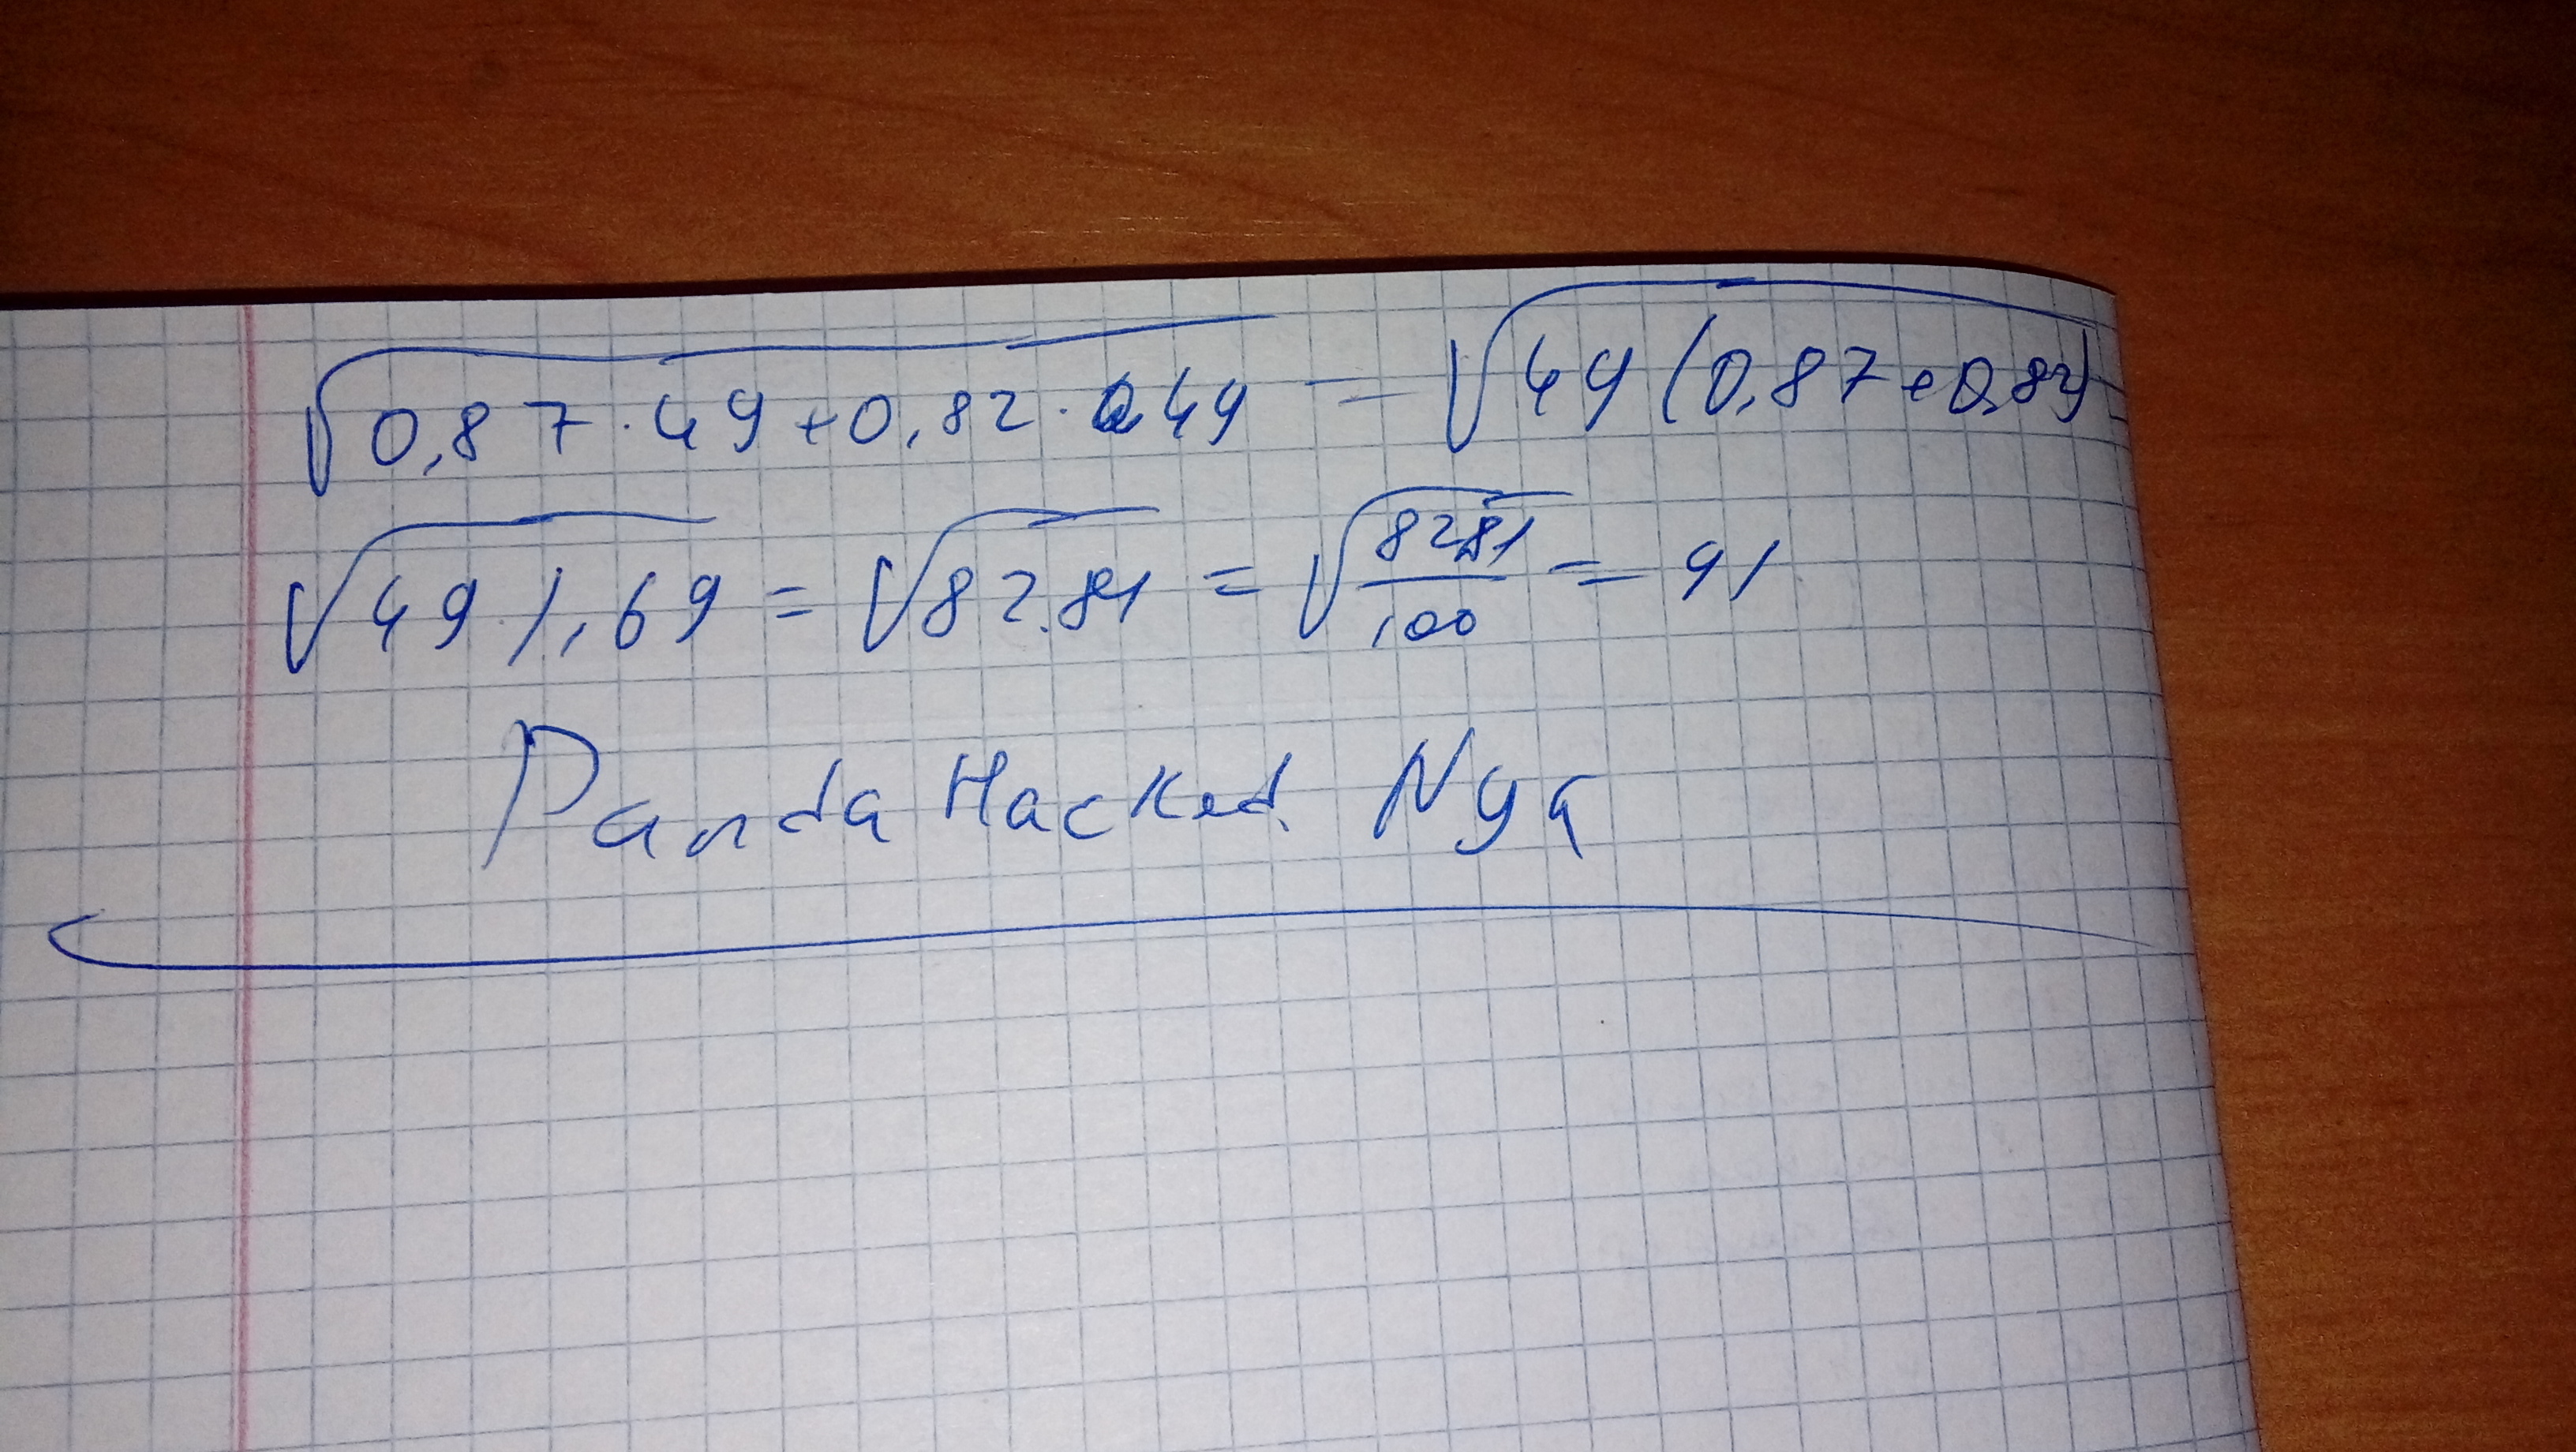 √0,87·49+0,82·49 = √49(0,87+0,82)
√49·1,69 = √82.81 = √8281/100 = 91
Panda Hacked Nya